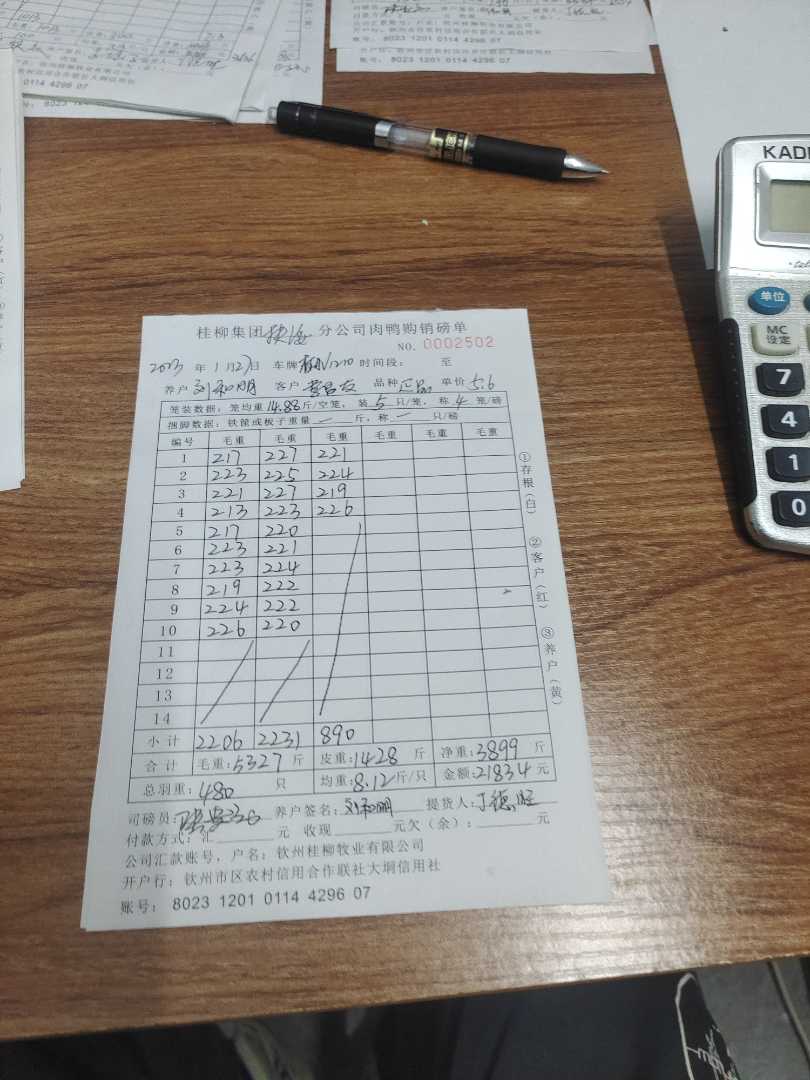 账号: 8023 1201 0114 4296 07
0114 4296 07
账号: 8023
KADI
单位
MC
设定
7
4
1
0
桂柳集团 分公司肉鸭购销磅单
NO. 0002502
2023 年 1月27日 车牌 时间段: 至
养户 刘和明 客户 品种 正品 单价 5.6
笼装数据: 笼均重 14.88 斤/空笼, 装 5 只/笼, 称 4 笼/磅
捆脚数据: 铁筐或板子重量 — 斤, 称 — 只/磅
编号 毛重 毛重 毛重 毛重 毛重 毛重
1 217 227 221
2 223 225 224
3 221 227 219
4 213 223 226
5 217 220
6 223 221
7 223 224
8 219 222
9 224 222
10 226 220
11
12
13
14
小计 2206 2231 890
合计 毛重:5327 斤 皮重:1428 斤 净重:3899 斤
总羽重: 480 只 均重:8.12斤/只 金额:21834元
司磅员: 养户签名: 刘和明 提货人: 丁德旺
付款方式: 汇 元 收现 元欠(余): 元
公司汇款账号, 户名: 钦州桂柳牧业有限公司
开户行: 钦州市区农村信用合作联社大垌信用社
账号: 8023 1201 0114 4296 07
①存根(白) ②客户(红) ③养户(黄)